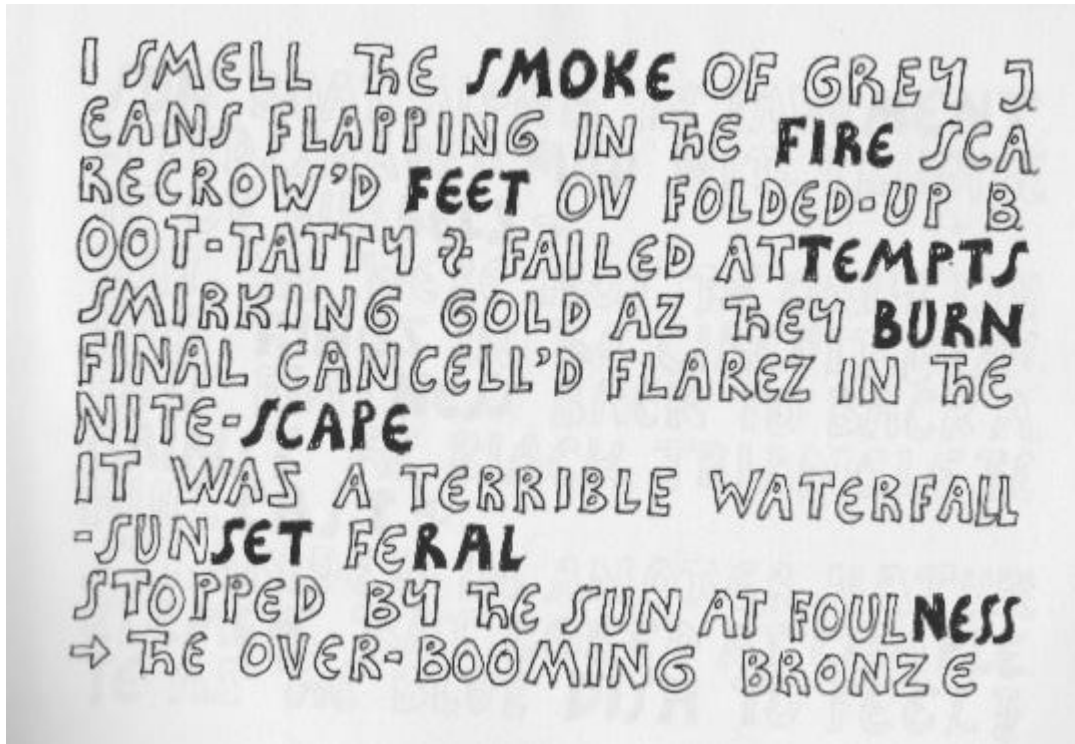 I SMELL THE SMOKE OF GREY J
EANS FLAPPING IN THE FIRE SCA
RECROW'D FEET OV FOLDED-UP B
OOT-TATTY & FAILED ATTEMPTS
SMIRKING GOLD AZ THEY BURN
FINAL CANCELL'D FLAREZ IN THE
NITE-SCAPE
IT WAS A TERRIBLE WATERFALL
-SUNSET FERAL
STOPPED BY THE SUN AT FOULNESS
⇨ THE OVER-BOOMING BRONZE